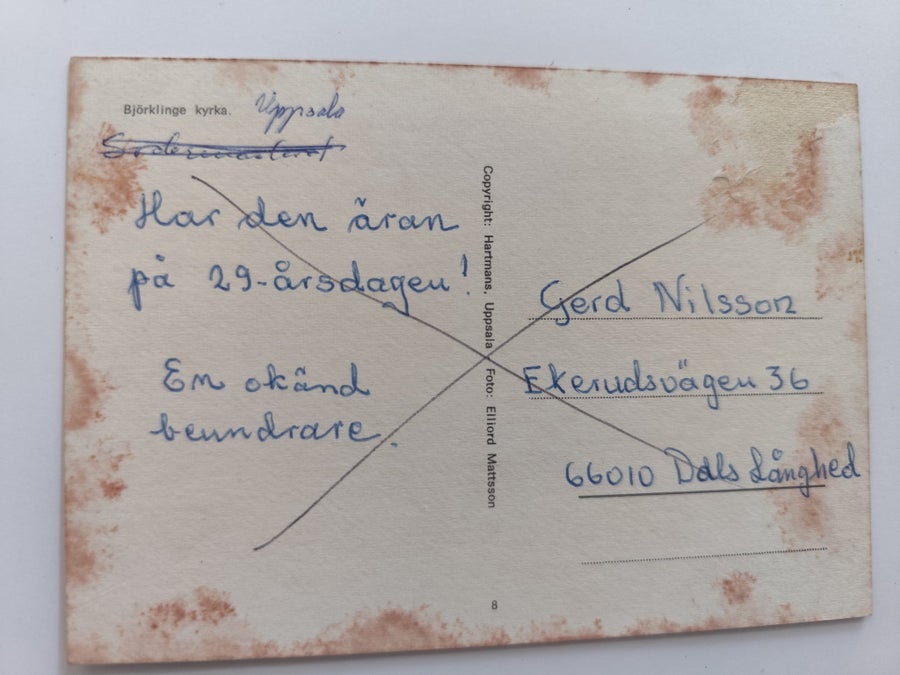 Björklinge kyrka. Uppsala
Har den äran
på 29-årsdagen!
En okänd
beundrare.
Copyright: Hartmans, Uppsala Foto: Elliord Mattsson
Gerd Nilsson
Ekerudsvägen 36
66010 Dals Långhed
8